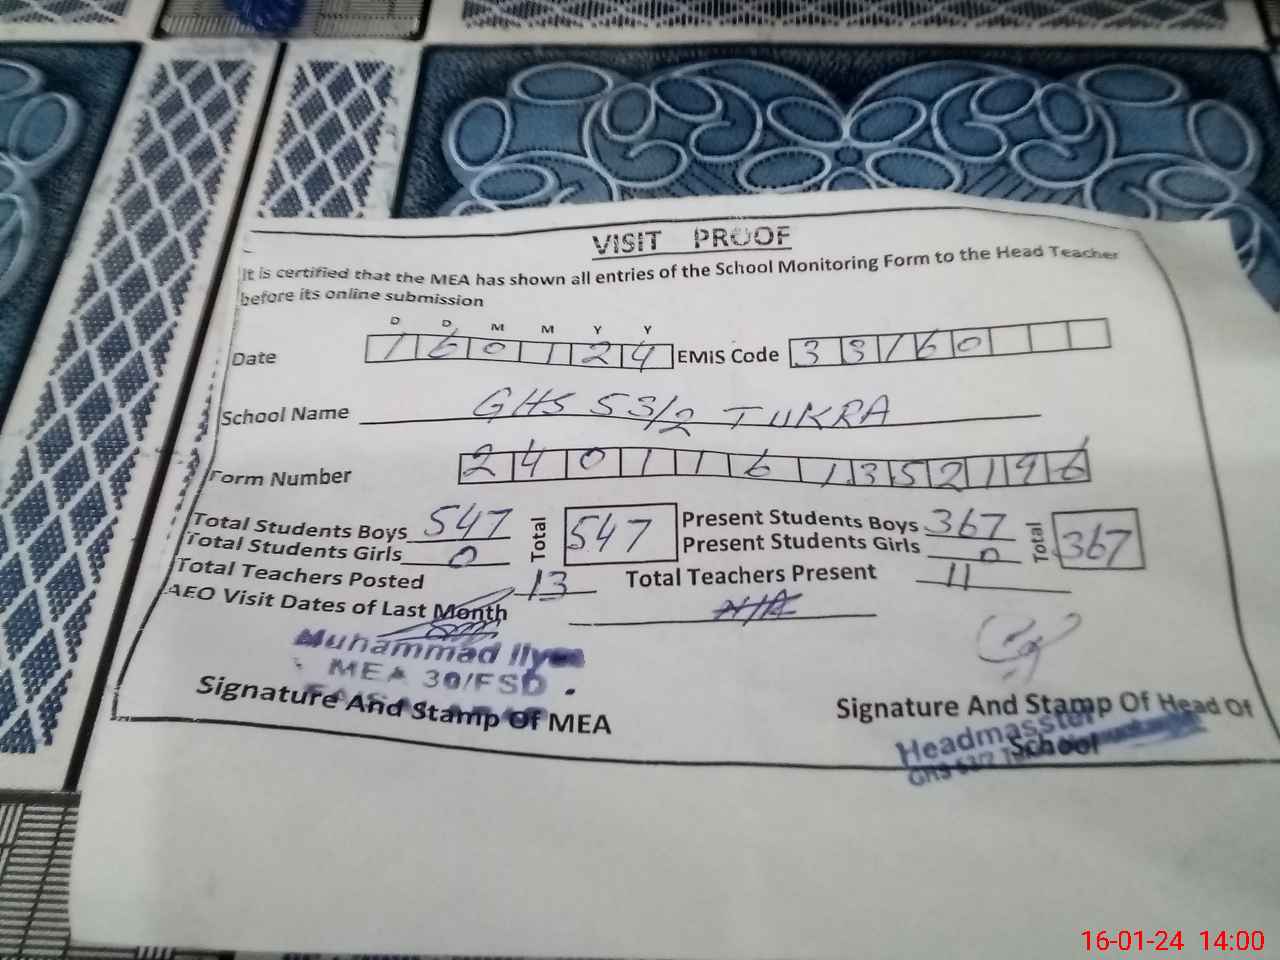 VISIT PROOF
It is certified that the MEA has shown all entries of the School Monitoring Form to the Head Teacher
before its online submission
D D M M Y Y
Date 160124 EMIS Code 33160
School Name GHS 53/2 TUKRA
Form Number 2401161352196
Total Students Boys 547 Total 547 Present Students Boys 367 Total 367
Total Students Girls 0 Present Students Girls 0
Total Teachers Posted 13 Total Teachers Present 11
AEO Visit Dates of Last Month
Muhammad Ilyas
MEA 30/FSD
Signature And Stamp Of MEA
Signature And Stamp Of Head Of
School
Headmasster
16-01-24 14:00